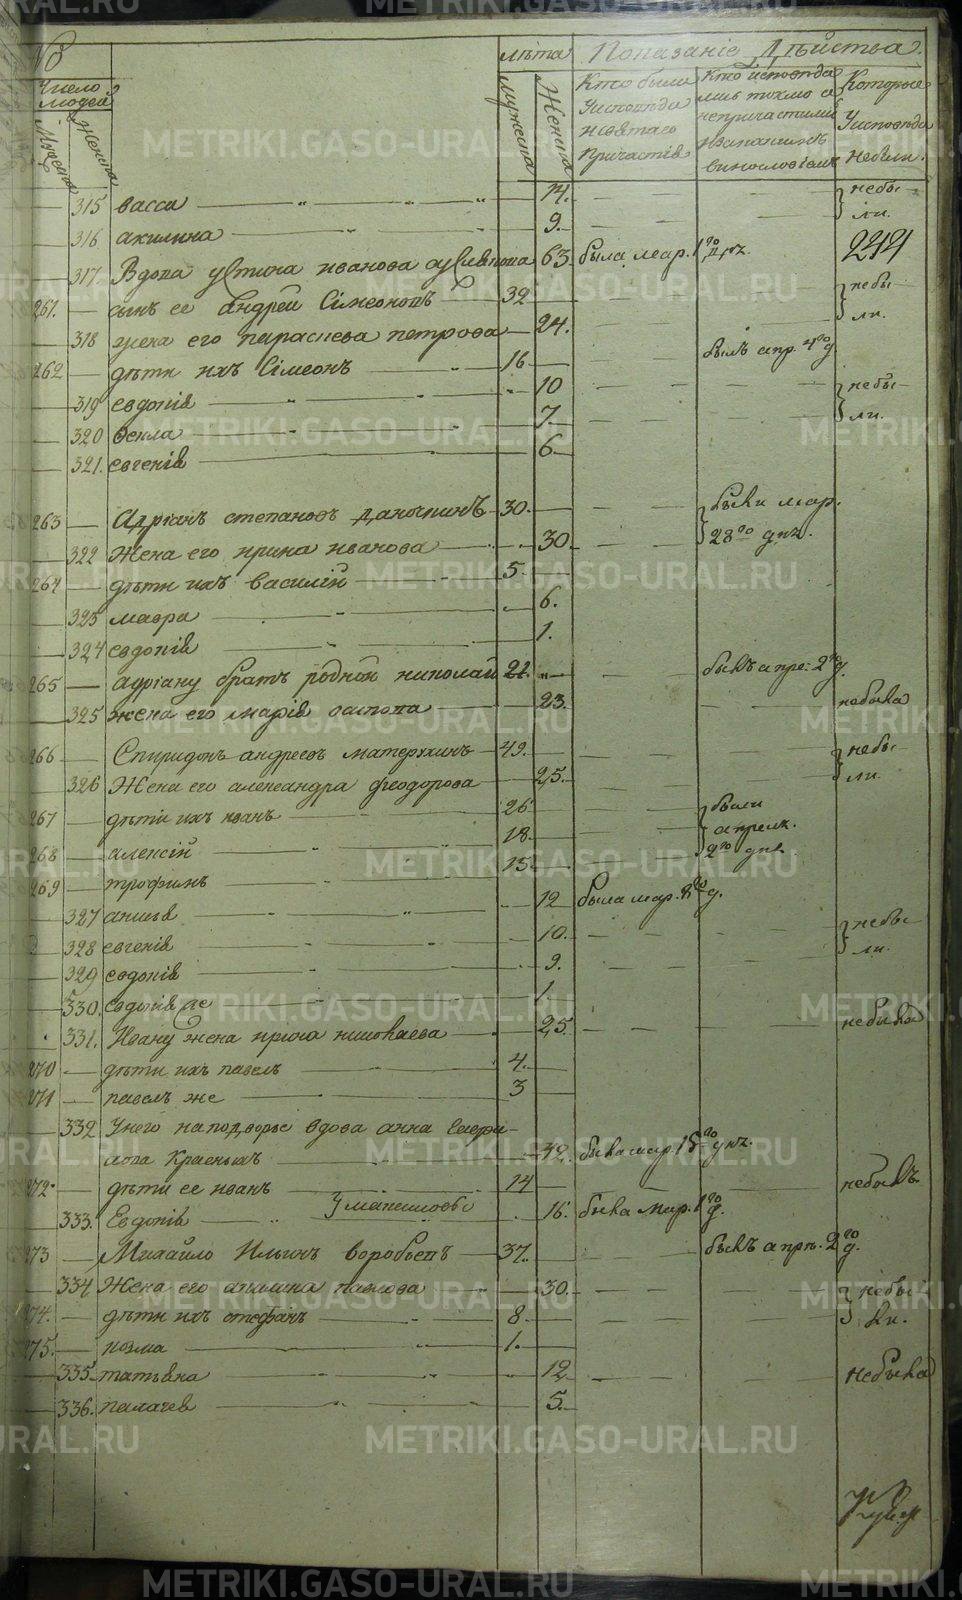 Число людей
Мужеска
Женска
Лѣта
Мужеска
Женска
Показаніе Дѣйства.
Кто были у исповѣди и святаго Причастія
Кто исповѣдались токмо а непричастились и за какимъ винословіемъ
Которые у исповѣди небыли.
315 васса 14. небыли.
316 акилина 9.
317. Вдова устина иванова 63. была мар. 1го д. 244
261. сынъ ее андрей Сімеоновъ 32 небыли.
318 жена его параскева петрова 24.
262 дѣти ихъ Сімеонъ 16 былъ апр. 4го д.
319 евдокія 10 небыли.
320 фекла 7.
321. евгенія 6
263 Адріанъ степановъ 30. были мар. 28го дня.
322 Жена его ирина иванова 30.
264 дѣти ихъ василій 5.
323 мавра 6.
324 евдокія 1.
265 адріану братъ родной николай 22. былъ апре: 2го д.
325 жена его марія 23. небыла
266 Спиридонъ андреевъ 49. небыли.
326 Жена его александра феодорова 25.
267 дѣти ихъ иванъ 26 были апреля. 2го дня
268 алексій 18.
269 трофимъ 15.
327 анисья 12 была мар. 8го д.
328 евгенія 10. небыли.
329 евдокія 9.
330. евдокія же 1
331. Ивану жена ирина 25. небыла
270 дѣти ихъ павелъ 4.
271 павелъ же 3
332 Унего на подворье вдова анна
Красныхъ 42. была мар. 15го дня.
272. дѣти ее иванъ 14 небылъ
333. Евдокія 16. была мар. 1го д.
273 Михайло Ильинъ воробьевъ 37. былъ апрѣ. 2го д.
334 Жена его акилина павлова 30. небыли.
274. дѣти ихъ стефанъ 8.
275. козма 1.
335 татьяна 12 небыла
336. палагея 5.
METRIKI.GASO-URAL.RU